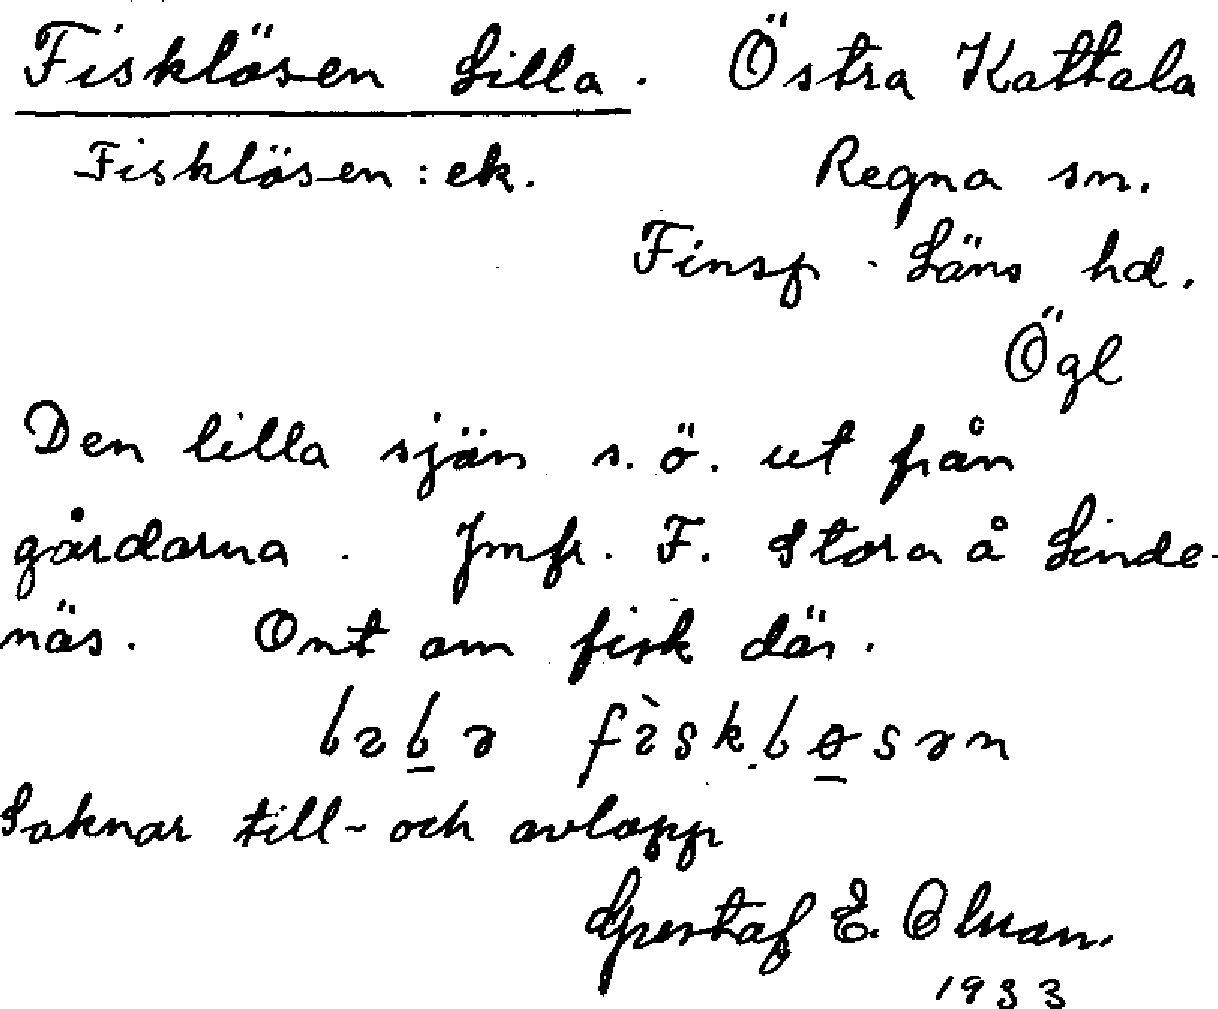 Fisklösen Lilla. Östra Kattala
Fisklösen: ek. Regna sn.
Finsp. Läns hd.
Ögl
Den lilla sjön s.ö. ut från
gårdarna. Jmfr. F. Stora å Linde-
näs. Ont om fisk där.
Saknar till- och avlopp
Gustaf E. Olson.
1933